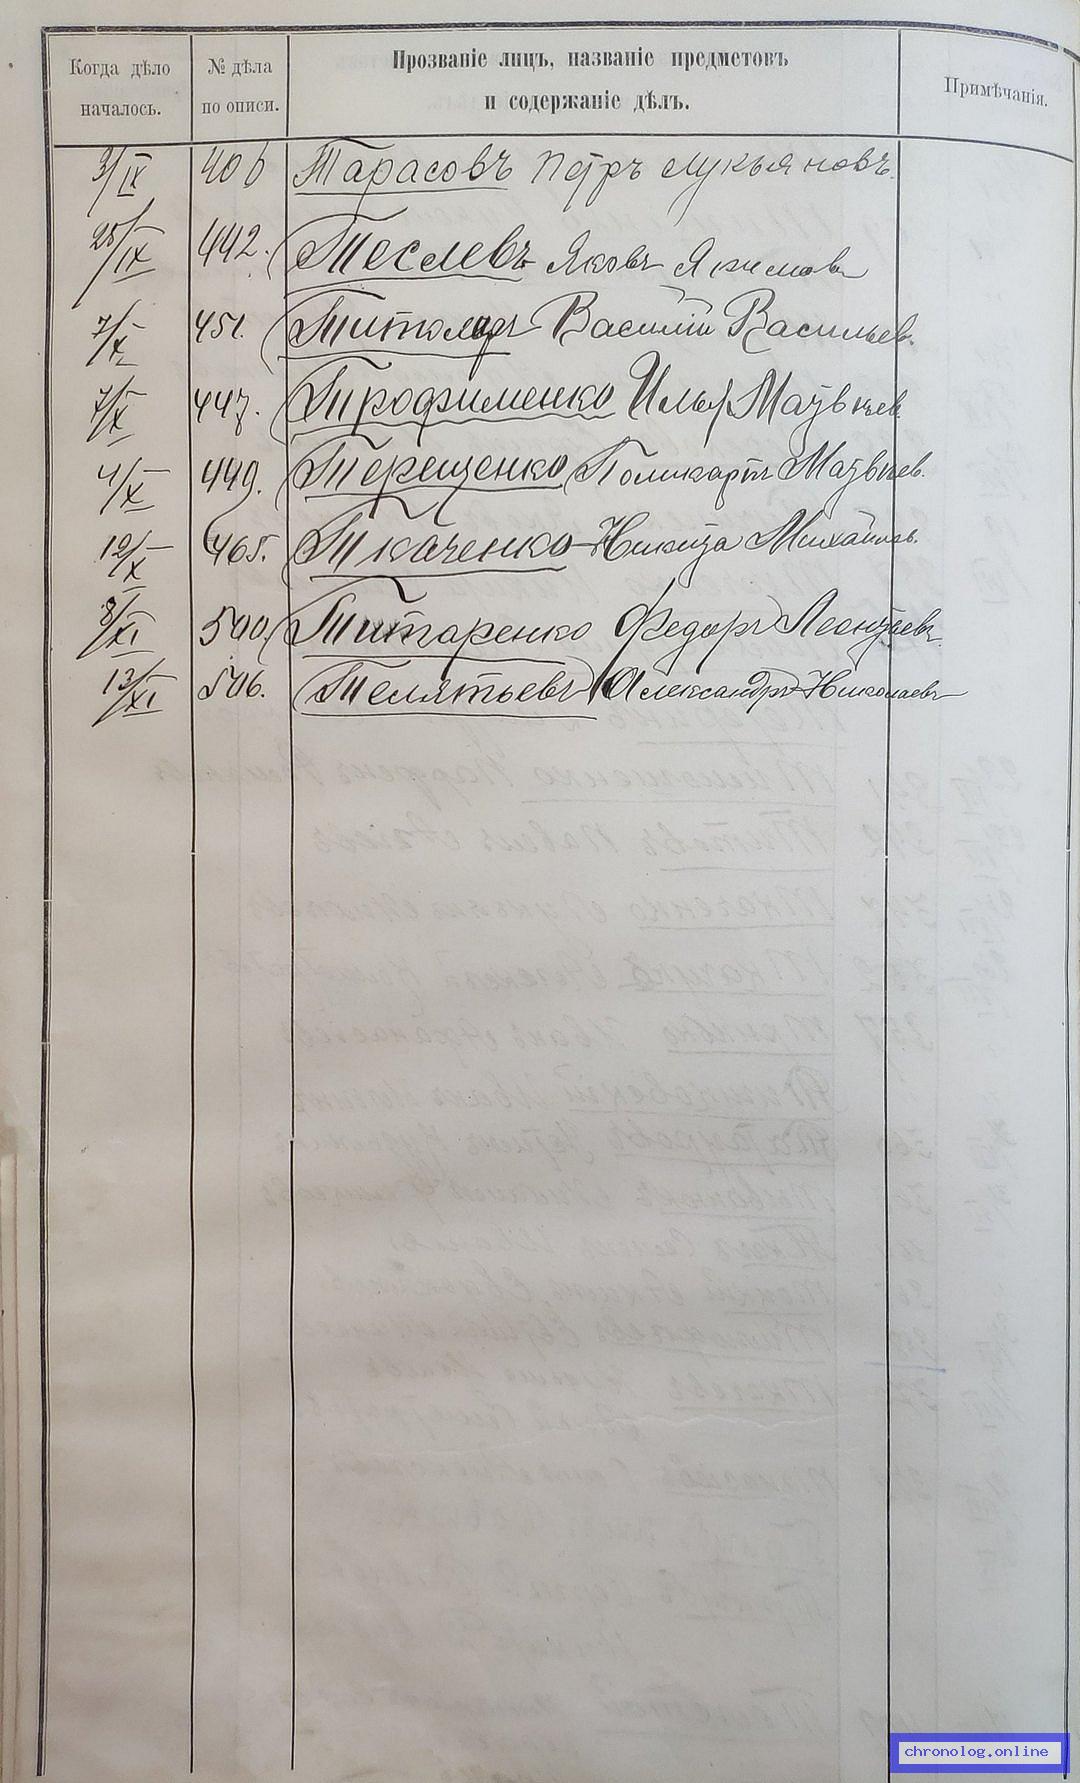 Когда дѣло началось.
№ дѣла по описи.
Прозваніе лицъ, названіе предметовъ и содержаніе дѣлъ.
Примѣчанія.
3/IX 406 Тарасовъ Петръ Лукьяновъ.
25/IX 442. Теслевъ Яковъ Якимовъ
7/X 451. Василій Васильев.
7/X 447. Трофименко Илья Матвѣев
4/X 449. Терещенко Поликарпъ Матвѣев.
12/X 465. Ткаченко Никита Михайловъ.
8/XI 500. Титаренко Федоръ Леонтьевъ.
13/XI 506. Телятьевъ Александръ Николаевъ
chronolog.online